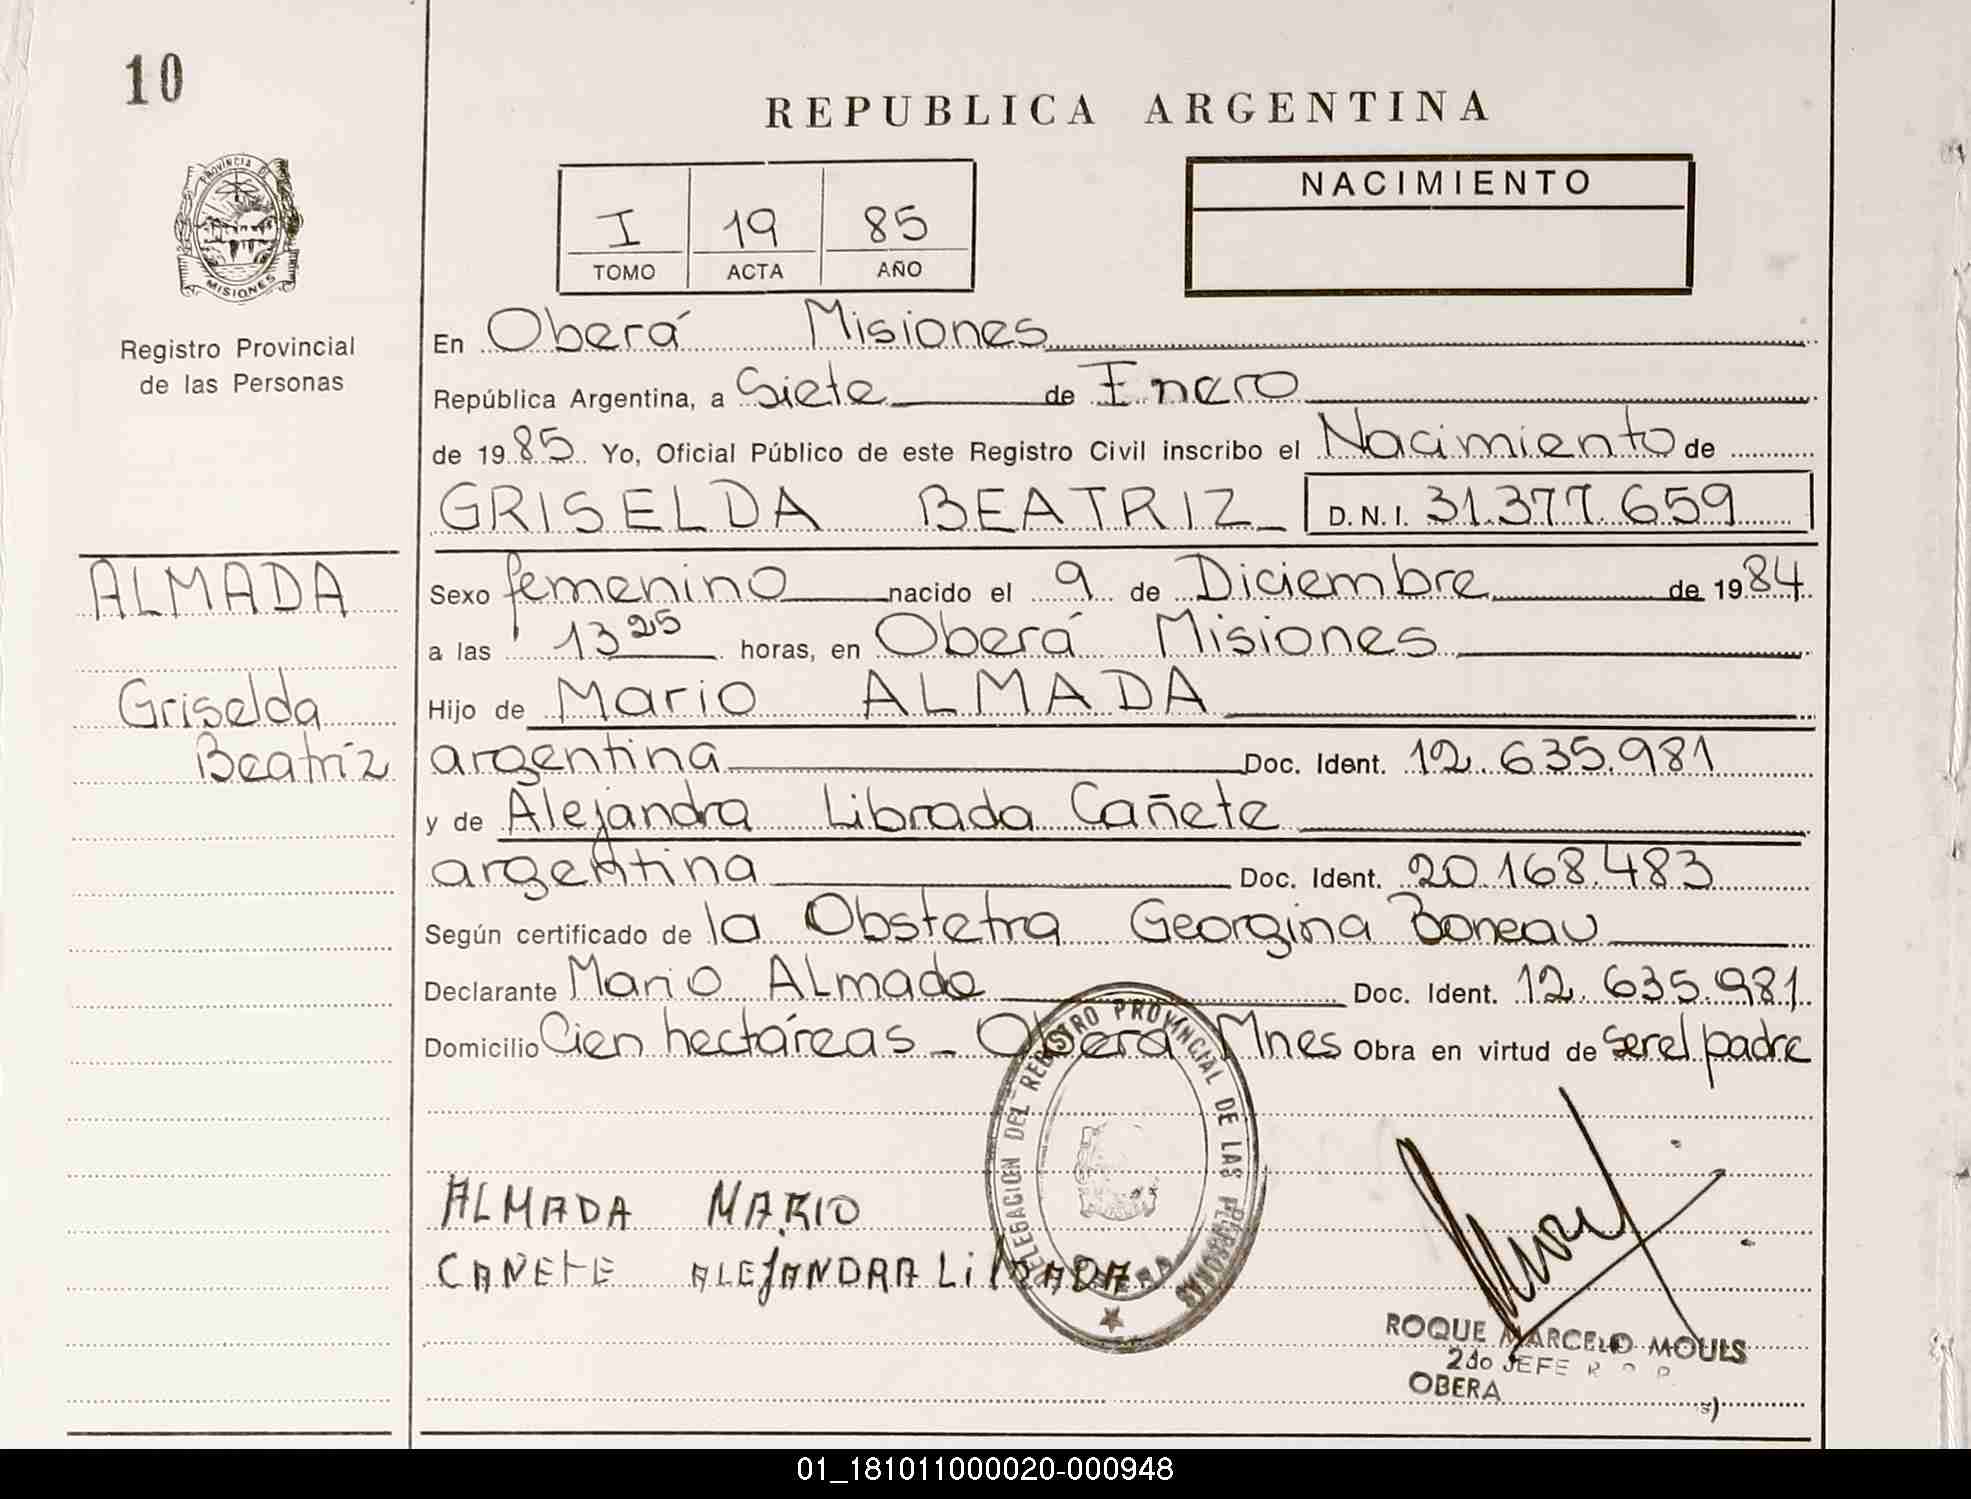 10
REPUBLICA ARGENTINA
PROVINCIA DE
MISIONES
Registro Provincial
de las Personas
I 19 85
TOMO ACTA AÑO
NACIMIENTO
En Oberá Misiones
República Argentina, a Siete de Enero
de 1985 Yo, Oficial Público de este Registro Civil inscribo el Nacimiento de
GRISELDA BEATRIZ D.N.I. 31.377.659
ALMADA
Griselda
Beatriz
Sexo femenino nacido el 9 de Diciembre de 1984
a las 13 25 horas, en Oberá Misiones
Hijo de Mario ALMADA
argentina Doc. Ident. 12.635.981
y de Alejandra Librada Cañete
argentina Doc. Ident. 20.168.483
Según certificado de la Obstetra Georgina Boneau
Declarante Mario Almada Doc. Ident. 12.635.981
Domicilio Cien hectáreas - Oberá Mnes Obra en virtud de ser el padre
DELEGACION DEL REGISTRO PROVINCIAL DE LAS PERSONAS
OBERA
ALMADA MARIO
CAÑETE ALEJANDRA LIBRADA
ROQUE MARCELO MOULS
2do JEFE R P
OBERA
01_181011000020-000948